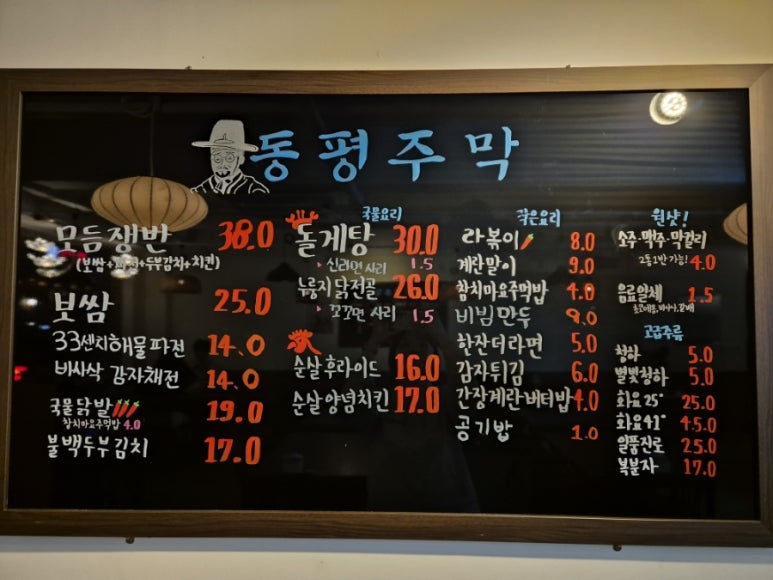 동평주막
모듬쟁반 38.0
(보쌈+파전+두부김치+치킨)
보쌈 25.0
33센치해물파전 14.0
바사삭 감자채전 14.0
국물닭발 19.0
참치마요주먹밥 4.0
불백두부김치 17.0
국물요리
돌게탕 30.0
신라면 사리 1.5
누룽지닭전골 26.0
꼬꼬면 사리 1.5
순살후라이드 16.0
순살양념치킨 17.0
작은요리
라볶이 8.0
계란말이 9.0
참치마요주먹밥 4.0
비빔만두 9.0
한잔더라면 5.0
감자튀김 6.0
간장계란버터밥 4.0
공기밥 1.0
원샷!
소주·맥주·막걸리
4.0
음료일체 1.5
고급주류
청하 5.0
별빛청하 5.0
화요25° 25.0
화요41° 45.0
일품진로 25.0
복분자 17.0